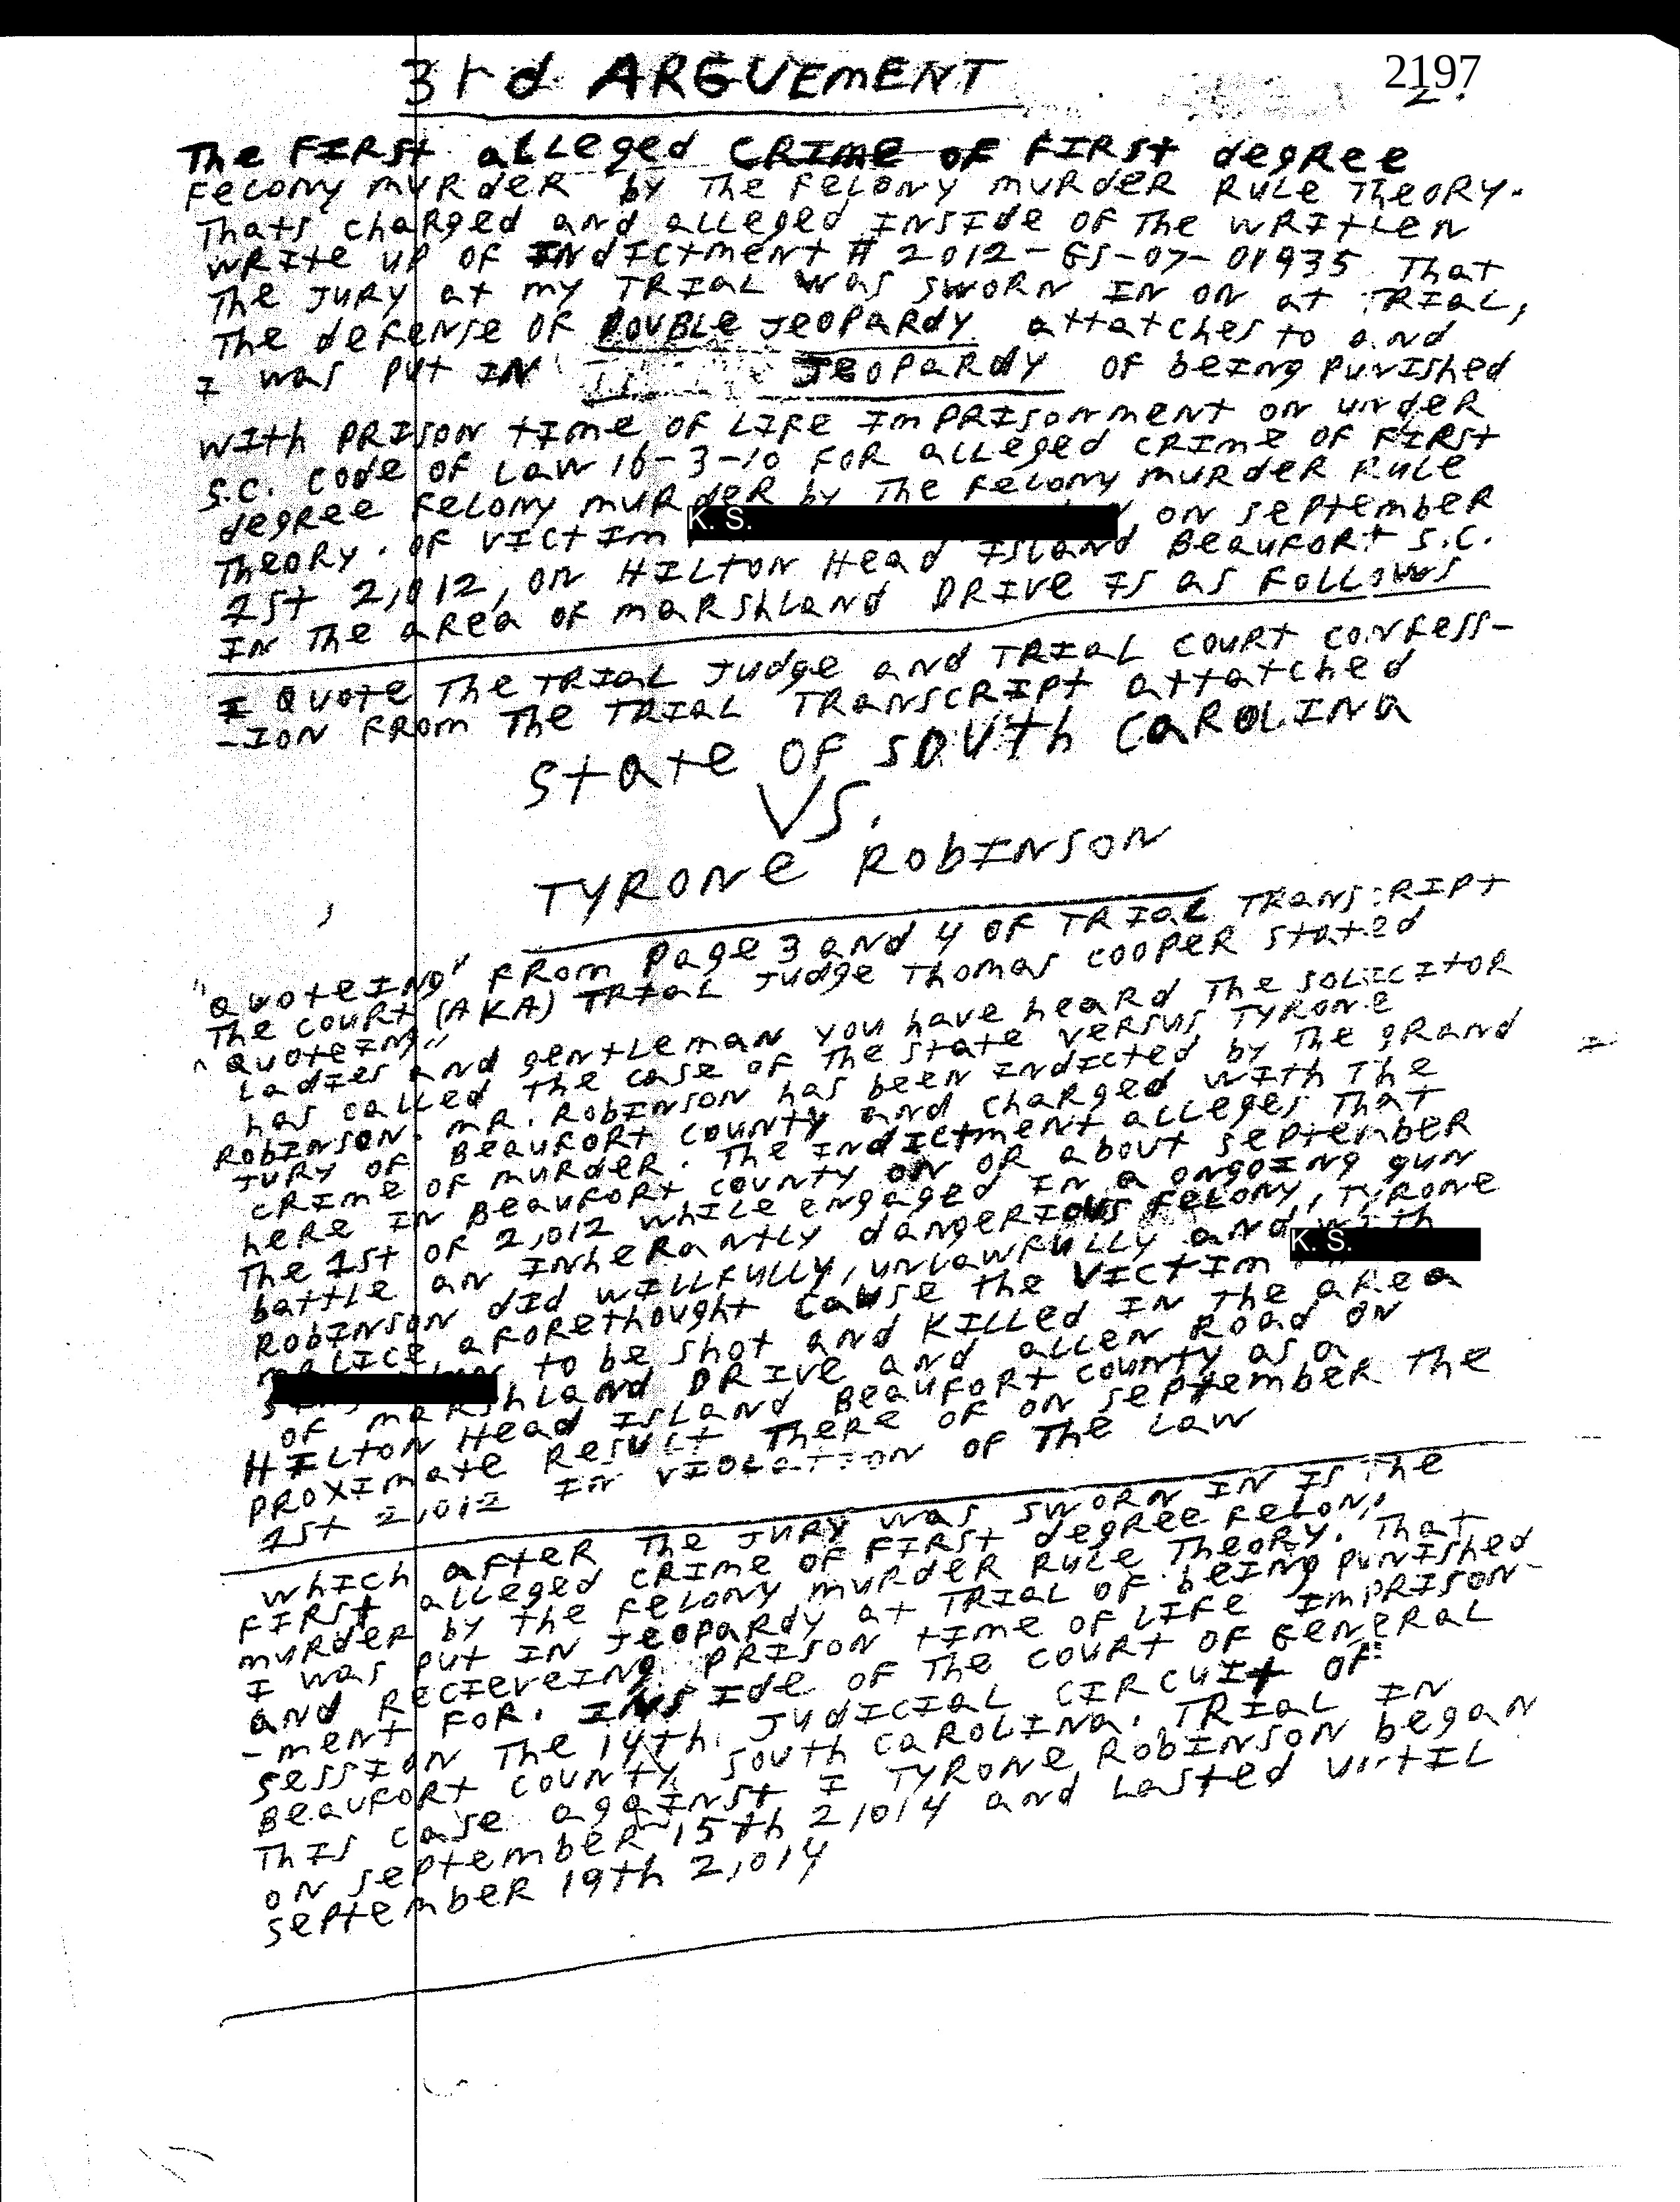 3rd ARGUEMENT
2197
2.
The FIRST alleged CRIME OF FIRST degree
Felony murder by the felony murder rule theory.
Thats charged and alleged inside of the writlen
write up of Indictment # 2012-GS-07-01935 That
The Jury at my TRIAL was sworn in on at TRIAL,
The defense of DOUBLE JEOPARDY attatches to and
I was put IN JEOPARDY of being punished
with prison time of LIFE Imprisonment on under
S.C. Code of Law 16-3-10 for alleged crime of FIRST
degree Felony murder by the Felony murder Rule
Theory. Of victim K. S. on September
1st 2,012, on Hilton Head Island Beaufort S.C.
In the area of Marshland Drive Is as Follows
I Quote The TRIAL Judge and TRIAL Court confess-
-ion from the TRIAL TRANSCRIPT attatched
State of South Carolina
VS.
Tyrone Robinson
"Quoteing" From Page 3 and 4 of TRIAL TRANSCRIPT
The Court (AKA) TRIAL Judge Thomas Cooper stated
"Quoteing"
Ladies and gentleman you have heard the solicitor
has called the case of the state versus Tyrone
Robinson. Mr. Robinson has been indicted by the grand
jury of Beaufort County and charged with the
crime of murder. The indictment alleges that
here in Beaufort County on or about September
the 1st of 2,012 while engaged in a ongoing gun
battle an inherantly dangerious felony, Tyrone
Robinson did willfully, unlawfully and with
malice, aforethought cause the victim K. S.
to be shot and killed in the area
of Marshland Drive and Allen Road on
Hilton Head Island Beaufort County as a
proximate result there of on September the
1st 2,012 in violation of the law
which after the jury was sworn in is the
First alleged crime of First degree felony
murder by the felony murder rule theory. That
I was put in jeopardy at TRIAL of being punished
and recieveing prison time of LIFE imprison-
-ment for. Inside of the court of General
Session the 14th Judicial Circuit of
Beaufort County South Carolina. TRIAL in
This case against I Tyrone Robinson began
on September 15th 2,014 and lasted until
September 19th 2,014